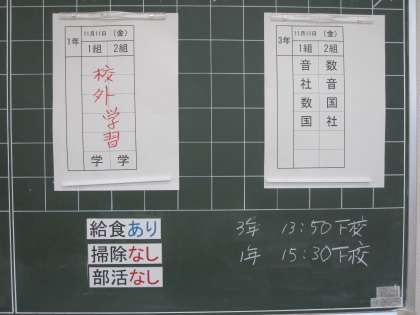 1年 11月11日 (金)
1組 2組
校外学習
学 学
3年 11月11日 (金)
1組 2組
音 数
社 音
数 国
国 社
給食あり
掃除なし
部活なし
3年 13:50下校
1年 15:30下校